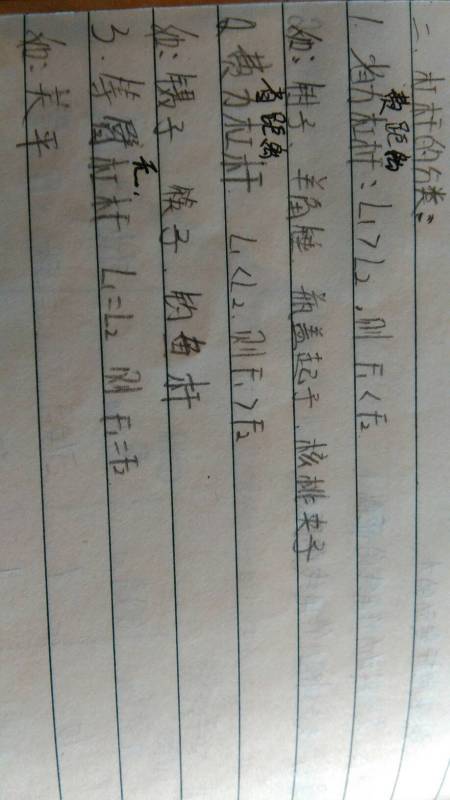 二.杠杆的分类:
费距离
1.省力杠杆:L1>L2,则F1<F2
如:钳子、羊角锤 瓶盖起子.核桃夹子
省距离
2费力杠杆 L1<L2.则F1>F2
如:镊子 筷子.钓鱼杆
3.等臂杠杆 L1=L2 则F1=F2
如:天平